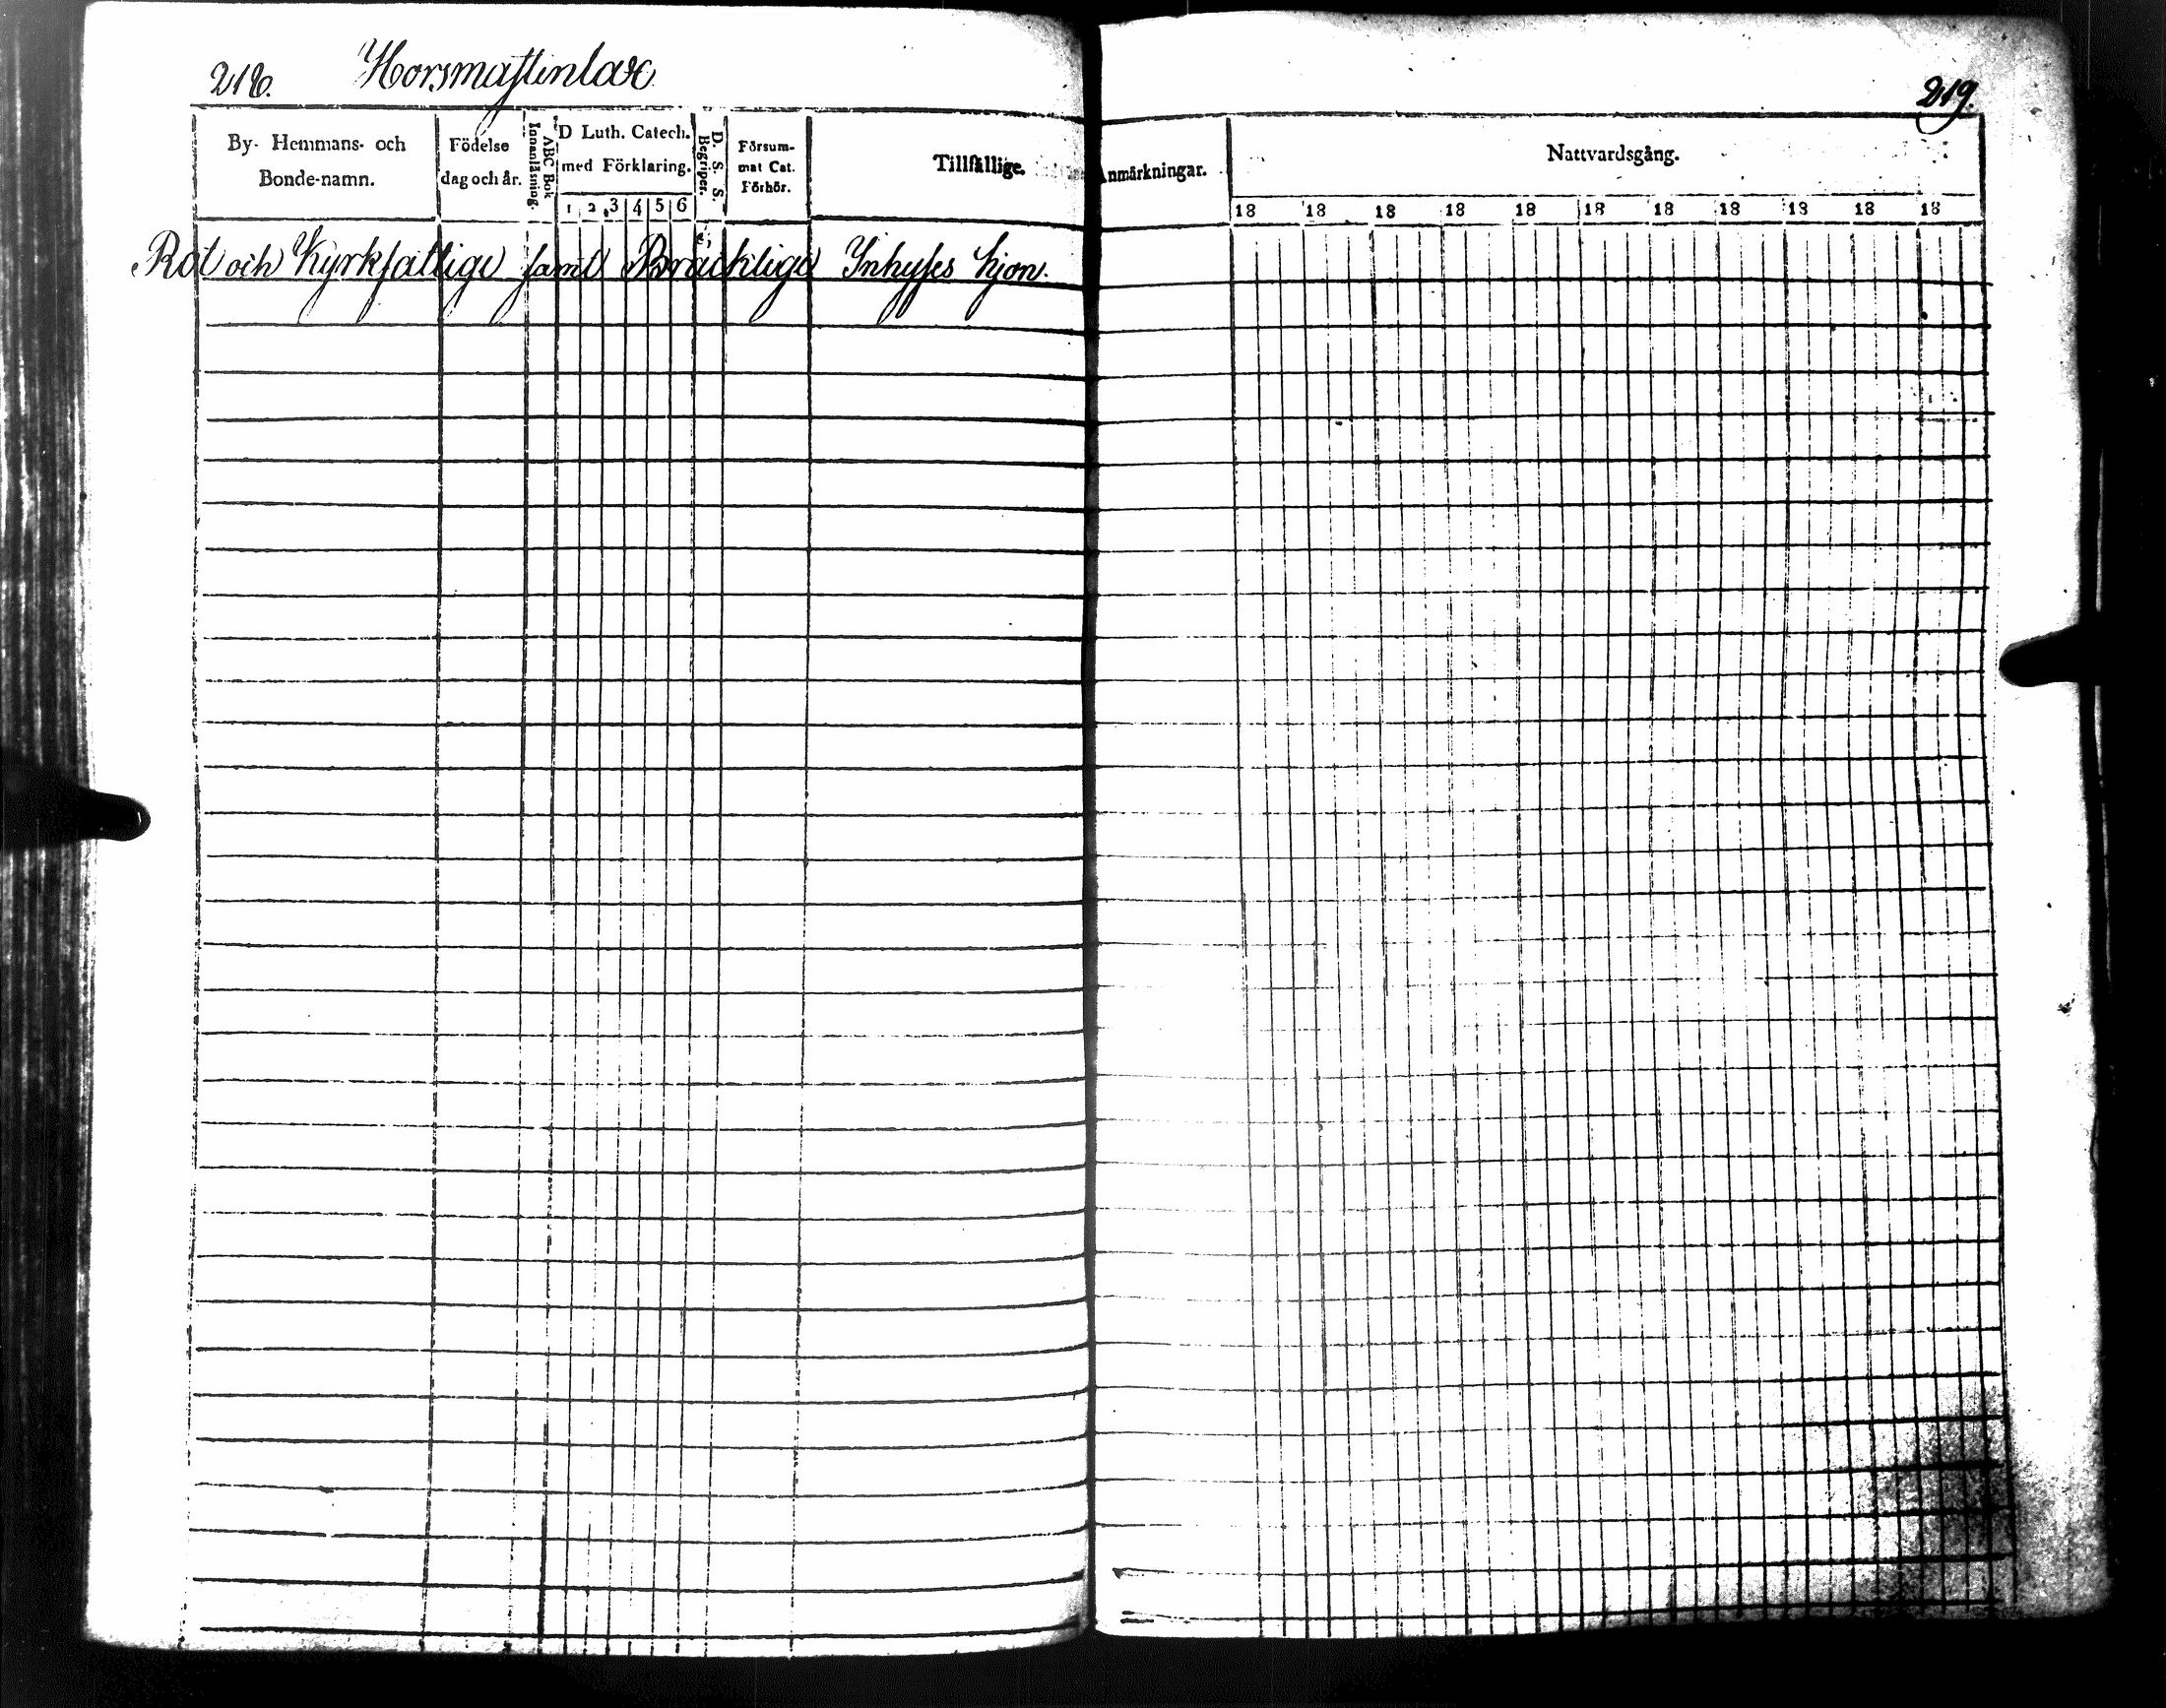 218. Horsmastenlax
219.
By- Hemmans- och Bonde-namn.
Födelse dag och år.
ABC Bok Innanläsning.
D Luth. Catech. med Förklaring.
1 2 3 4 5 6
D. S. S. Begriper.
Försum- mat Cat. Förhör.
Tillfällige.
Anmärkningar.
Nattvardsgång.
18 18 18 18 18 18 18 18 18 18 18
Rot och Kyrkfattige samt Bräcklige Inhyses hjon.